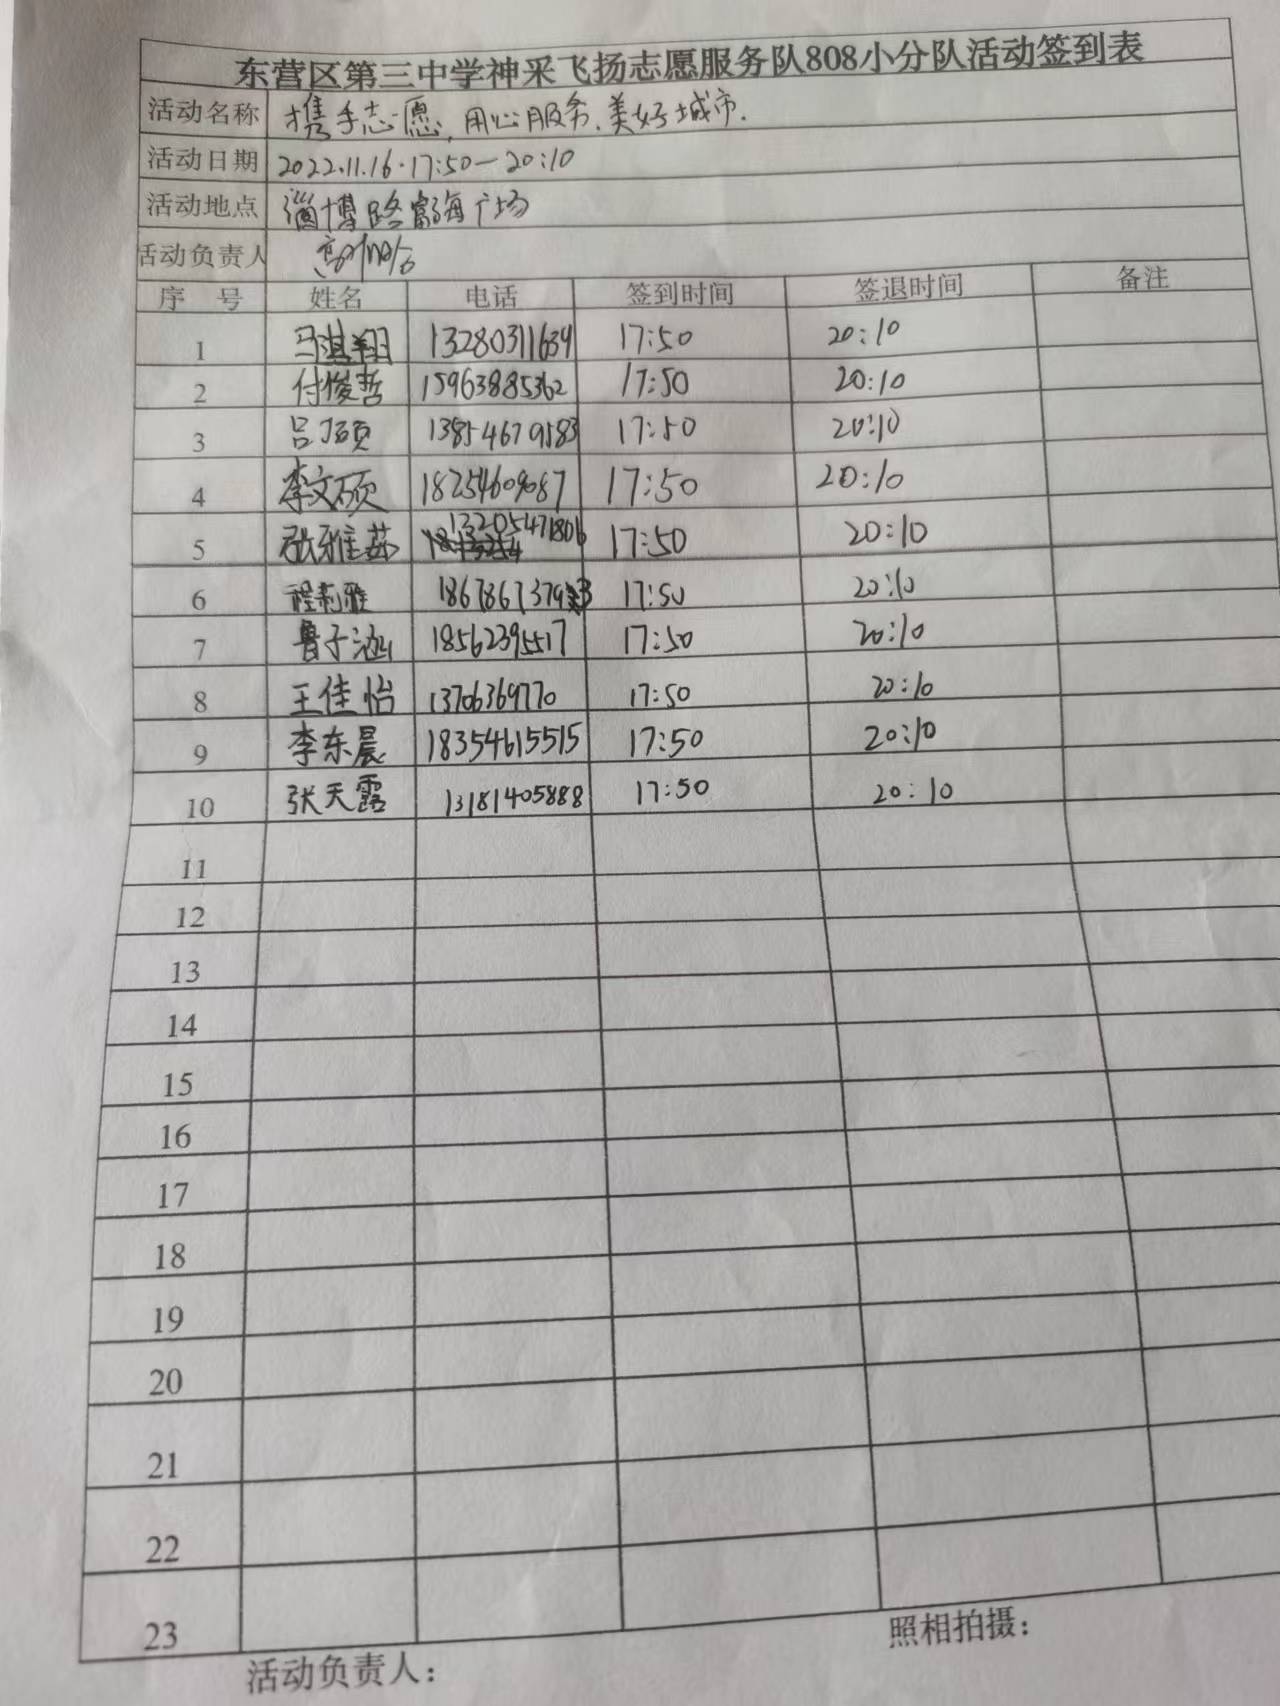 东营区第三中学神采飞扬志愿服务队808小分队活动签到表
活动名称 携手志愿,用心服务、美好城市.
活动日期 2022.11.16·17:50—20:10
活动地点 淄博路富海广场
活动负责人
序 号 姓名 电话 签到时间 签退时间 备注
1 马淇翔 13280311634 17:50 20:10
2 付俊哲 15963885362 17:50 20:10
3 吕硕 13854679583 17:50 20:10
4 李文硕 18254609087 17:50 20:10
5 张雅茹 13205471806 17:50 20:10
6 程莉雅 17:50 20:10
7 鲁子涵 18562395517 17:50 20:10
8 王佳怡 13706369770 17:50 20:10
9 李东晨 18354615515 17:50 20:10
10 张天露 13181405888 17:50 20:10
11
12
13
14
15
16
17
18
19
20
21
22
23
活动负责人: 照相拍摄: